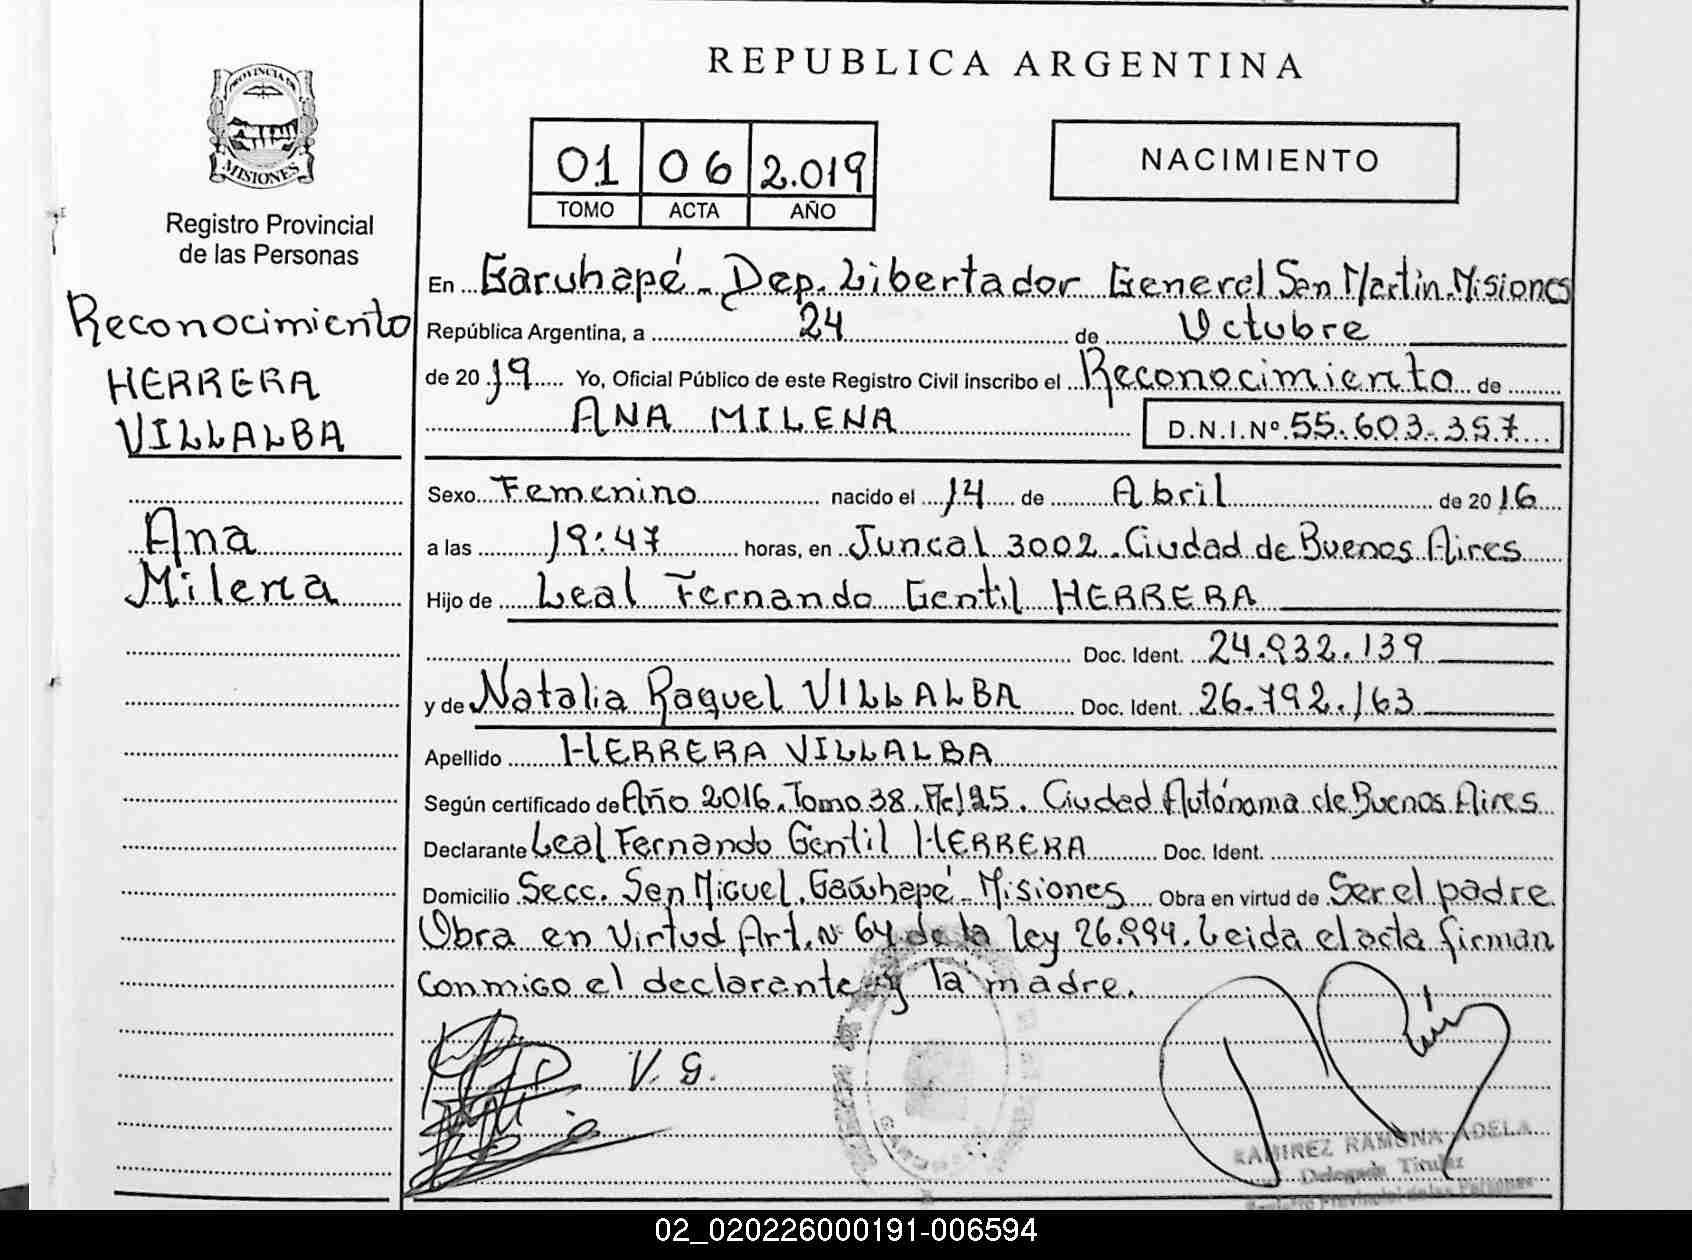 REPUBLICA ARGENTINA
PROVINCIA DE
MISIONES
Registro Provincial
de las Personas
01 06 2.019
TOMO ACTA AÑO
NACIMIENTO
Reconocimiento
HERRERA
VILLALBA
Ana
Milena
En Garuhapé - Dep. Libertador General San Martín. Misiones
República Argentina, a 24 de Octubre
de 2019 Yo, Oficial Público de este Registro Civil inscribo el Reconocimiento de
ANA MILENA D.N.I.Nº 55.603.357
Sexo Femenino nacido el 14 de Abril de 2016
a las 19:47 horas, en Juncal 3002. Ciudad de Buenos Aires
Hijo de Leal Fernando Gentil HERRERA
Doc. Ident. 24.932.139
y de Natalia Raquel VILLALBA Doc. Ident. 26.792.163
Apellido HERRERA VILLALBA
Según certificado de Año 2016. Tomo 38. Ciudad Autónoma de Buenos Aires
Declarante Leal Fernando Gentil HERRERA Doc. Ident.
Domicilio Secc. San Miguel. Garuhapé - Misiones Obra en virtud de Ser el padre.
Obra en Virtud Art. Nº 64 de la ley 26.994. Leida el acta firman
conmigo el declarante y la madre.
V. G.
RAMIREZ RAMONA ADELA
Delegada Titular
Registro Provincial de las Personas
02_020226000191-006594